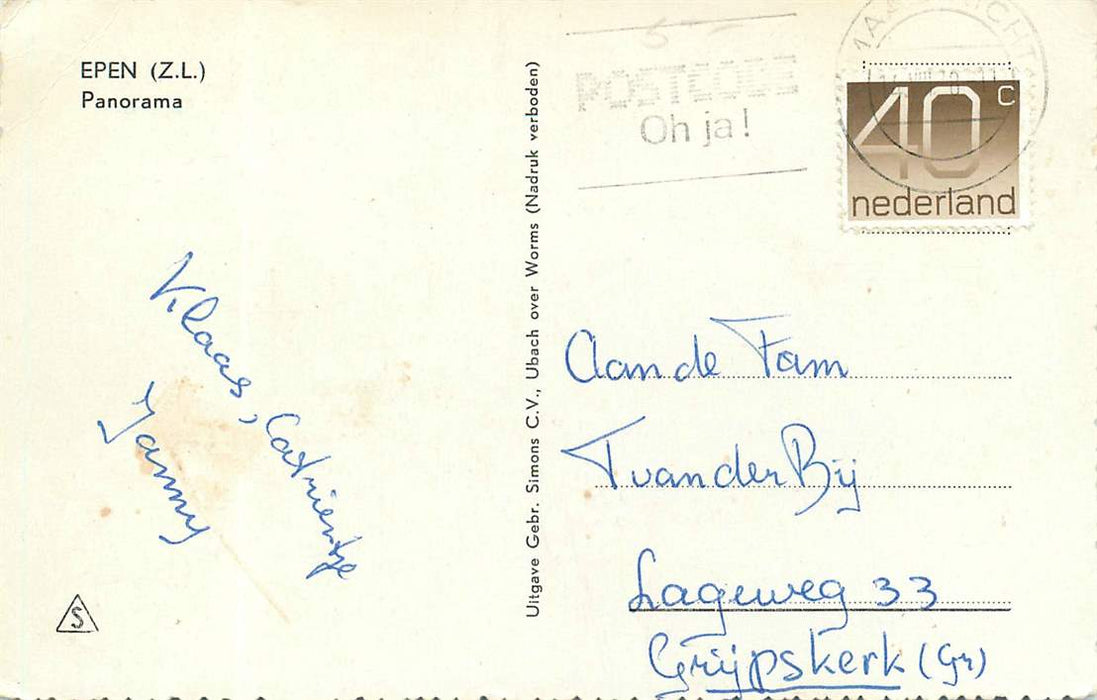 EPEN (Z.L.)
Panorama
Klaas, Catrientje
Janny
S
Uitgave Gebr. Simons C.V., Ubach over Worms (Nadruk verboden)
POSTCODE
Oh ja!
MAASTRICHT
40 c
nederland
Aan de Fam
T van der Bij
Lageweg 33
Grijpskerk (Gr)